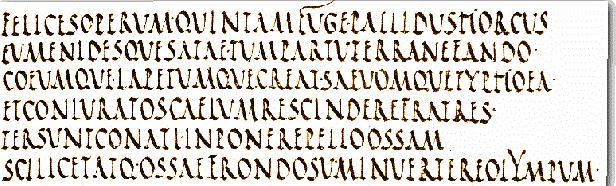 FELICESOPERVMQVINTAMFVGEPALLIDVSHORCVS
EVMENIDESQVESATAETVMPARTVTERRANEFANDO·
COEVMQVEIAPETVMQVECREATSAEVOMQVETYPHOEA·
ETCONIVRATOSCAELVMRESCINDEREFRATRES·
TERSVNTCONATIINPONEREPELIOOSSAM
SCILICETATQ·OSSAEFRONDOSVMINVERTEREOLYMPVM·